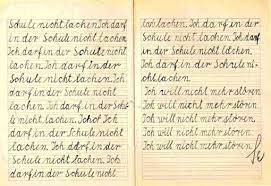 Schule nicht lachen. Ich darf
in der Schule nicht lachen.
Ich darf in der Schule nicht
lachen. Ich darf in der
Schule nicht lachen. Ich
darf in der Schule nicht
lachen. Ich darf in der Schu-
le nicht lachen. Ich darf in
der Schule nicht lachen. Ich
darf in der Schule nicht
lachen. Ich darf in der
Schule nicht lachen. Ich
lachen. Ich darf in der
Schule nicht lachen. Ich darf
in der Schule nicht lachen.
Ich darf in der Schule
nicht lachen.
Ich will nicht mehr stören
Ich will nicht mehr stören
Ich will nicht mehr stören.
Ich will nicht mehr stören.
Ich will nicht mehr stören.